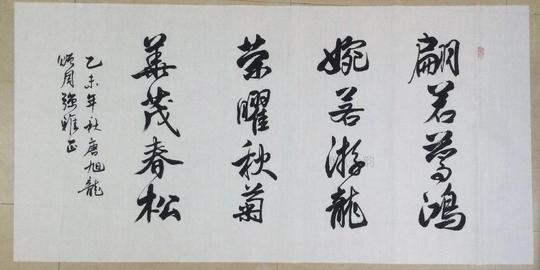 翩若惊鸿
婉若游龙
荣曜秋菊
华茂春松
乙未年秋唐旭龙
顺周强雅正